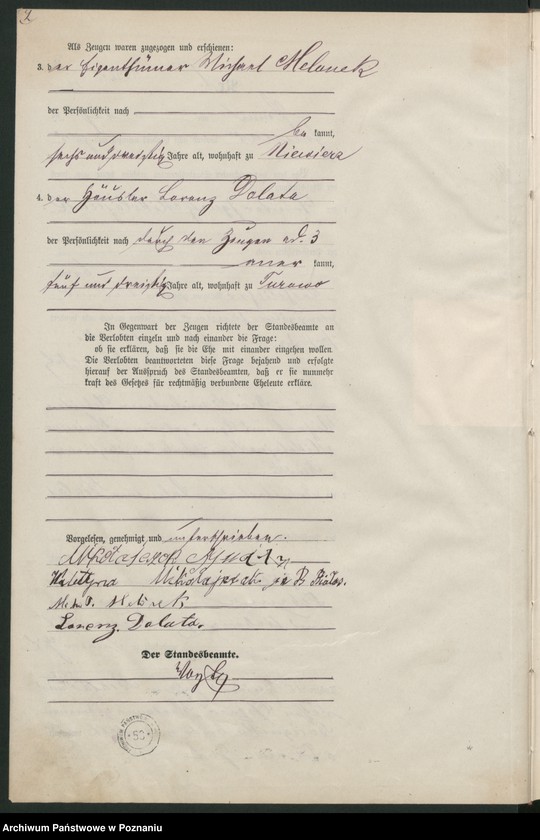 2
Als Zeugen waren zugezogen und erschienen:
3. der Eigenthümer Michael Melonek
der Persönlichkeit nach
be kannt,
sechs und dreißig Jahre alt, wohnhaft zu Niewierz
4. der Häusler Lorenz Dolata
der Persönlichkeit nach durch den Zeugen ad. 3
aner kannt,
fünf und dreißig Jahre alt, wohnhaft zu Turowo
In Gegenwart der Zeugen richtete der Standesbeamte an
die Verlobten einzeln und nach einander die Frage:
ob sie erklären, daß sie die Ehe mit einander eingehen wollen.
Die Verlobten beantworteten diese Frage bejahend und erfolgte
hierauf der Ausspruch des Standesbeamten, daß er sie nunmehr
kraft des Gesetzes für rechtmäßig verbundene Eheleute erkläre.
Vorgelesen, genehmigt und unterschrieben.
Mikołajczak
Mikołajczak
Lorenz. Dolata.
Der Standesbeamte.
53
Archiwum Państwowe w Poznaniu